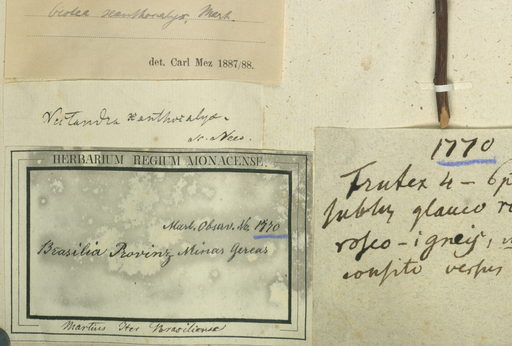 xanthocalyx, Mart.
det. Carl Mez 1887/88.
Nectandra xanthocalyx.
Nees.
HERBARIUM REGIUM MONACENSE.
Mart. Observ. No. 1770
Brasilia Provinz Minas Geraes
Martius Iter Brasiliense
1770
Frutex 4-6p
subtus glauco
roseo-igneis,
consito versus